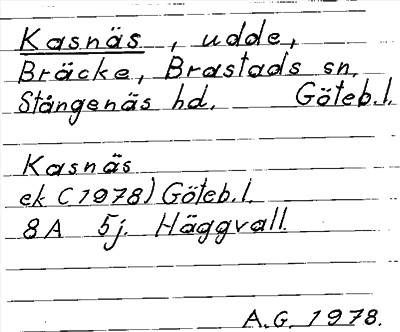 Kasnäs, udde,
Bräcke, Brastads sn,
Stångenäs hd. Göteb.l.
Kasnäs
ek (1978) Göteb.l.
8A 5j. Häggvall.
A.G. 1978.